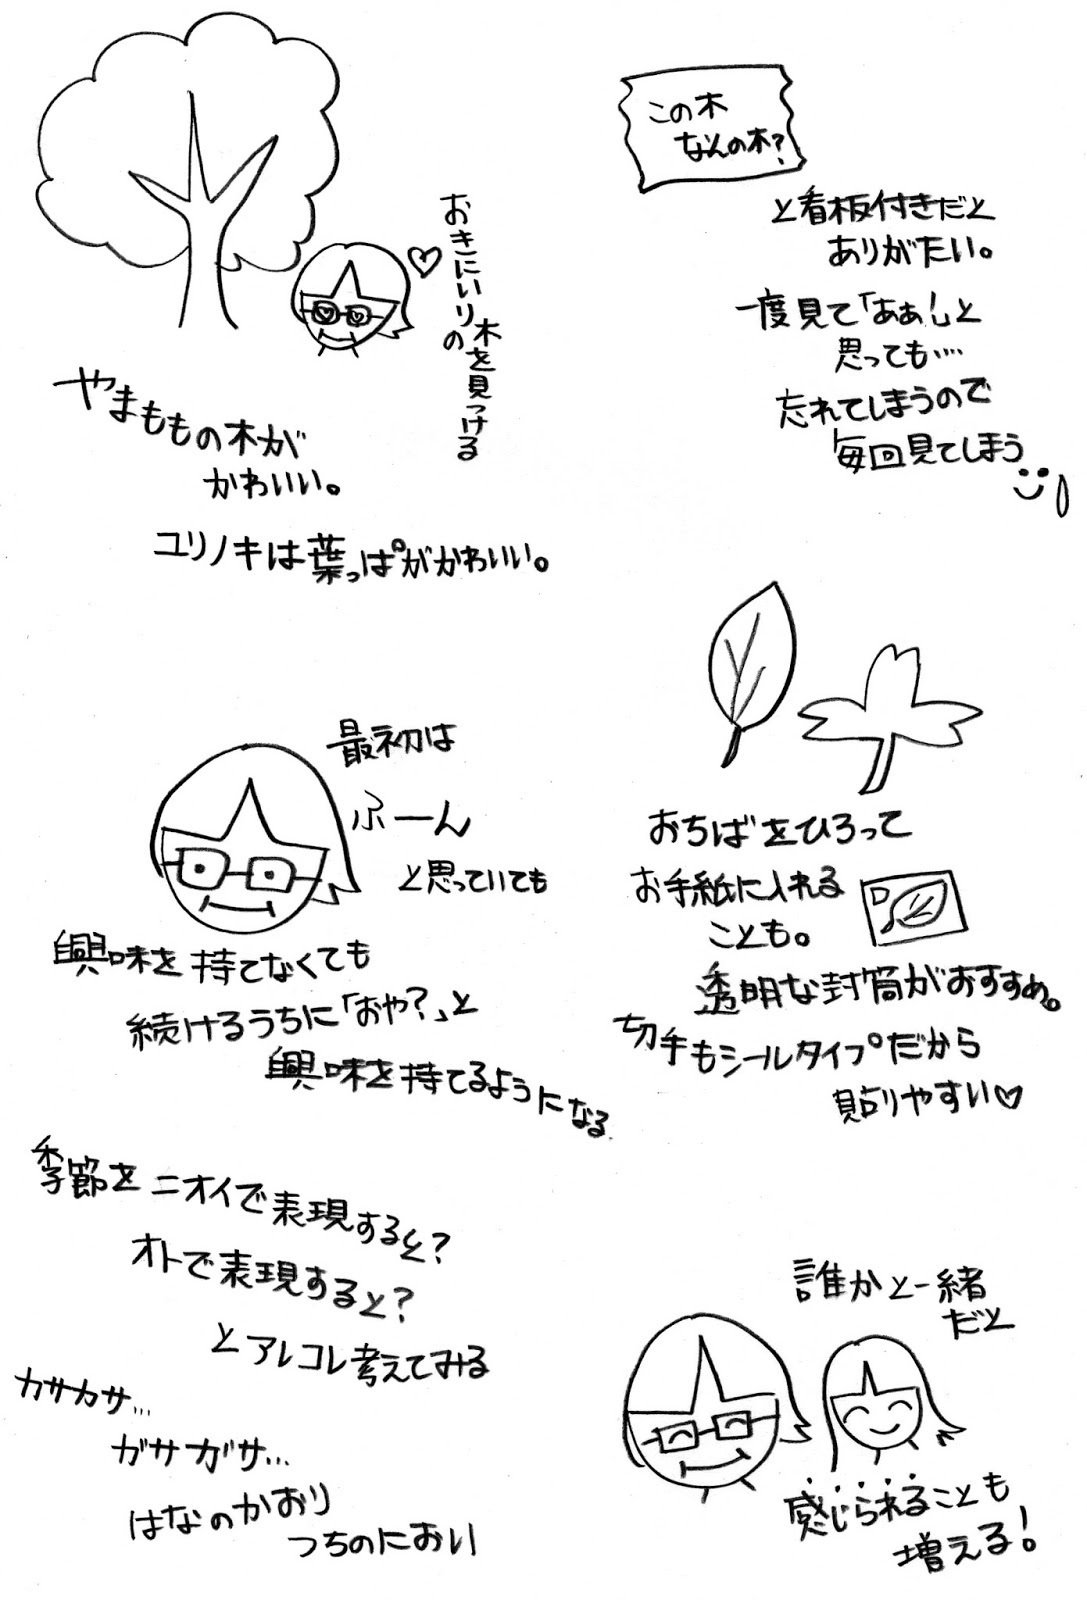 おきにいりの
木を見つける
やまももの木が
かわいい。
ユリノキは葉っぱがかわいい。
この木
なんの木?
と看板付きだと
ありがたい。
一度見て「あぁ!」と
思っても....
忘れてしまうので
毎回見てしまう
最初は
ふーん
と思っていても
興味を持てなくても
続けるうちに「おや?」と
興味を持てるようになる
おちばをひろって
お手紙に入れる
ことも。
透明な封筒がおすすめ。
切手もシールタイプだから
貼りやすい♡
季節をニオイで表現すると?
オトで表現すると?
とアレコレ考えてみる
カサカサ...
ガサガサ...
はなのかおり
つちのにおい
誰かと一緒
だと
感じられることも
増える!